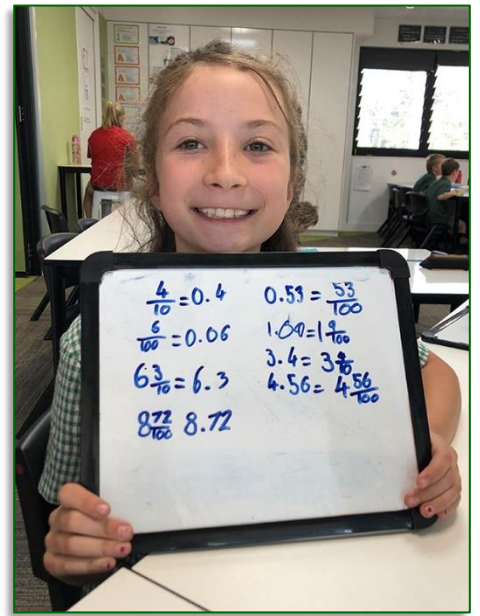 4/10 = 0.4
6/100 = 0.06
6 3/10 = 6.3
8 72/100 8.72
0.53 = 53/100
1.09 = 1 9/100
3.4 = 3 4/10
4.56 = 4 56/100